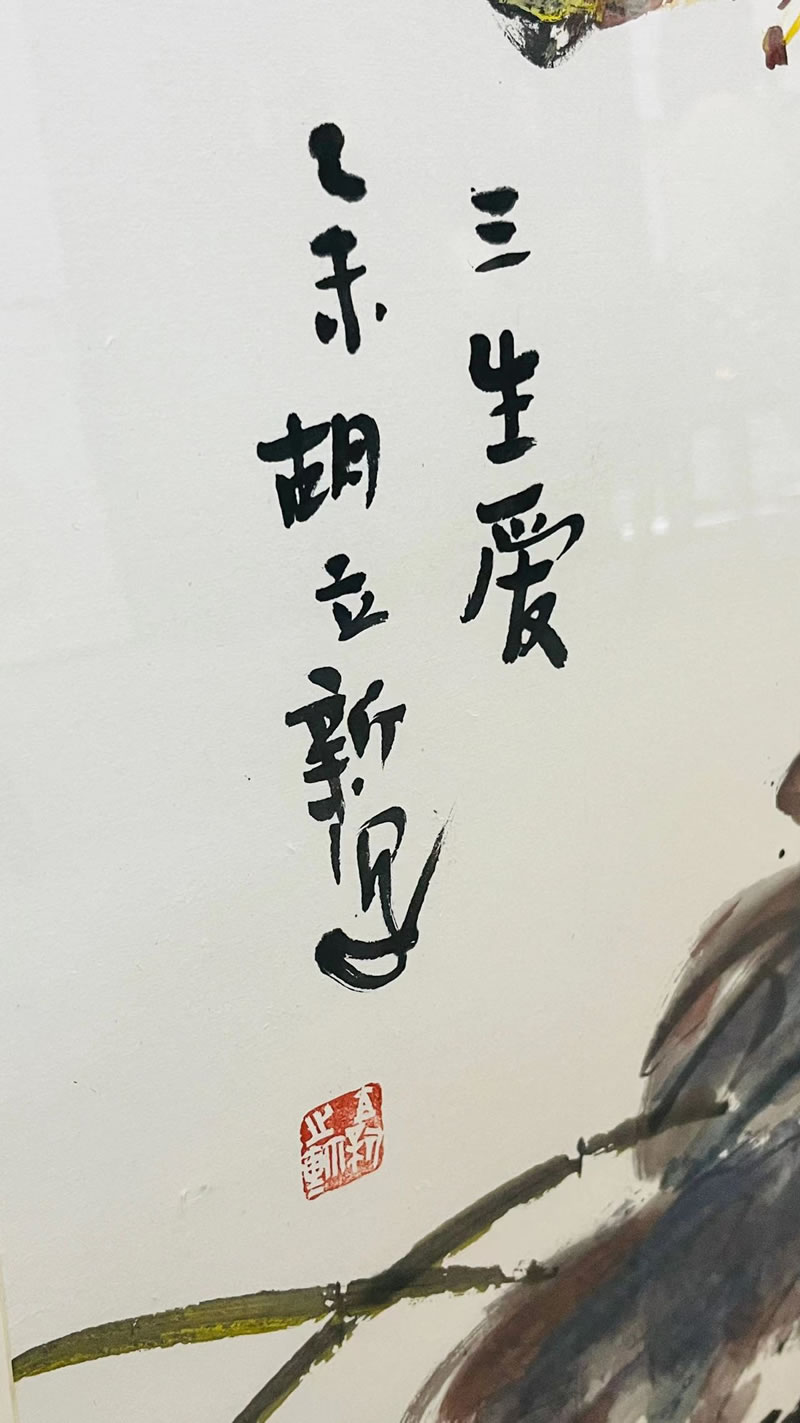 三生爱
乙未胡立新